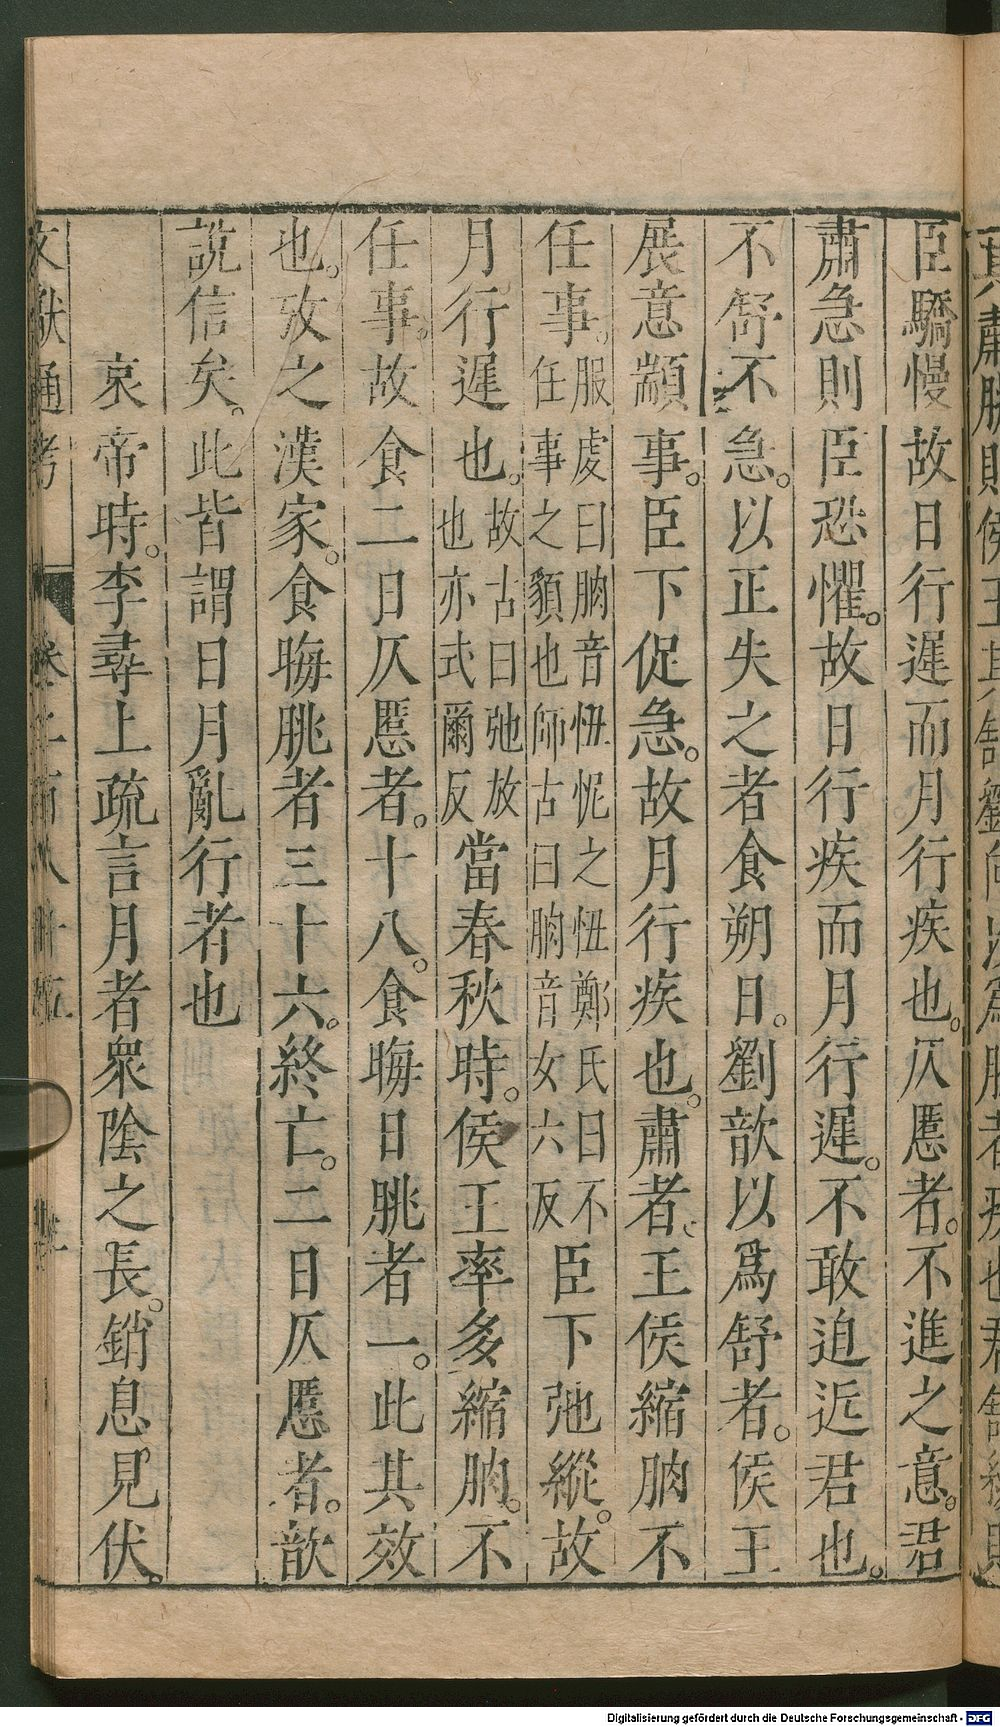 臣驕慢故日行遲而月行疾也。仄慝者。不進之意。君
肅急則臣恐懼。故日行疾而月行遲。不敢迫近君也。
不舒不急。以正失之者食朔日。劉歆以爲舒者。侯王
展意顓事。臣下促急。故月行疾也。肅者、王侯縮朒不
任事。服虔曰朒音忸怩之忸鄭氏曰不任事之貌也師古曰朒音女六反臣下弛縱。故
月行遲也。故古曰弛放也亦式爾反當春秋時。侯王率多縮朒。不
任事。故食二日仄慝者。十八。食晦日朓者一。此其效
也。攷之漢家。食晦朓者三十六。終亡。二日仄慝者。歆
說信矣。此皆謂日月亂行者也
哀帝時。李尋上疏言月者衆陰之長。銷息見伏。
文獻通考
Digitalisierung gefördert durch die Deutsche Forschungsgemeinschaft - DFG